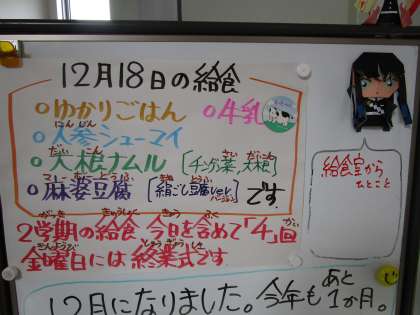 12月18日の給食
○ゆかりごはん ○牛乳
にんじん
○人参シューマイ
だいこん
○大根ナムル [チンゲン菜、大根]
マーボーどうふ
○麻婆豆腐 [絹ごし豆腐ver.]です
2学期の給食、今日を含めて「4」回
金曜日には終業式です
給食室から
ひとこと
12月になりました。今年もあと
1か月。